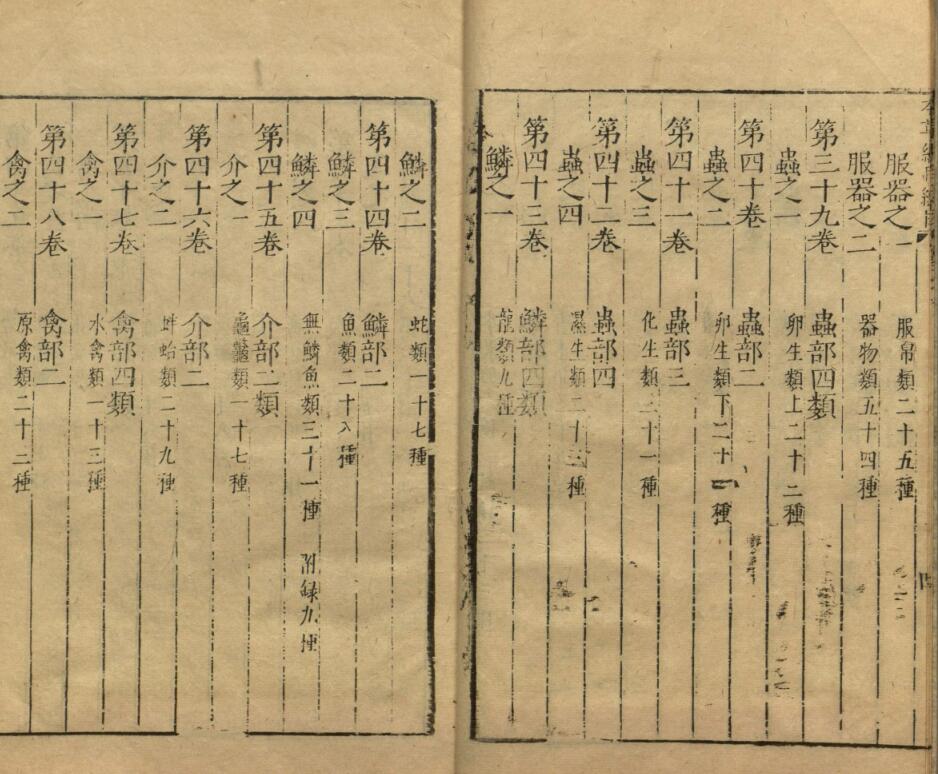 服器之一 服帛類二十五種
服器之二 器物類五十四種
第三十九卷 蟲部四類
蟲之一 卵生類上二十二種
第四十卷 蟲部二
蟲之二 卵生類下二十一種
第四十一卷 蟲部三
蟲之三 化生類三十一種
第四十二卷 蟲部四
蟲之四 濕生類二十三種
第四十三卷 鱗部四類
鱗之一 龍類九種
鱗之二 蛇類一十七種
第四十四卷 鱗部二
鱗之三 魚類二十八種
鱗之四 無鱗魚類三十一種 附録九種
第四十五卷 介部二類
介之一 龜鼈類一十七種
第四十六卷 介部二
介之二 蚌蛤類二十九種
第四十七卷 禽部四類
禽之一 水禽類二十三種
第四十八卷 禽部二
禽之二 原禽類二十二種